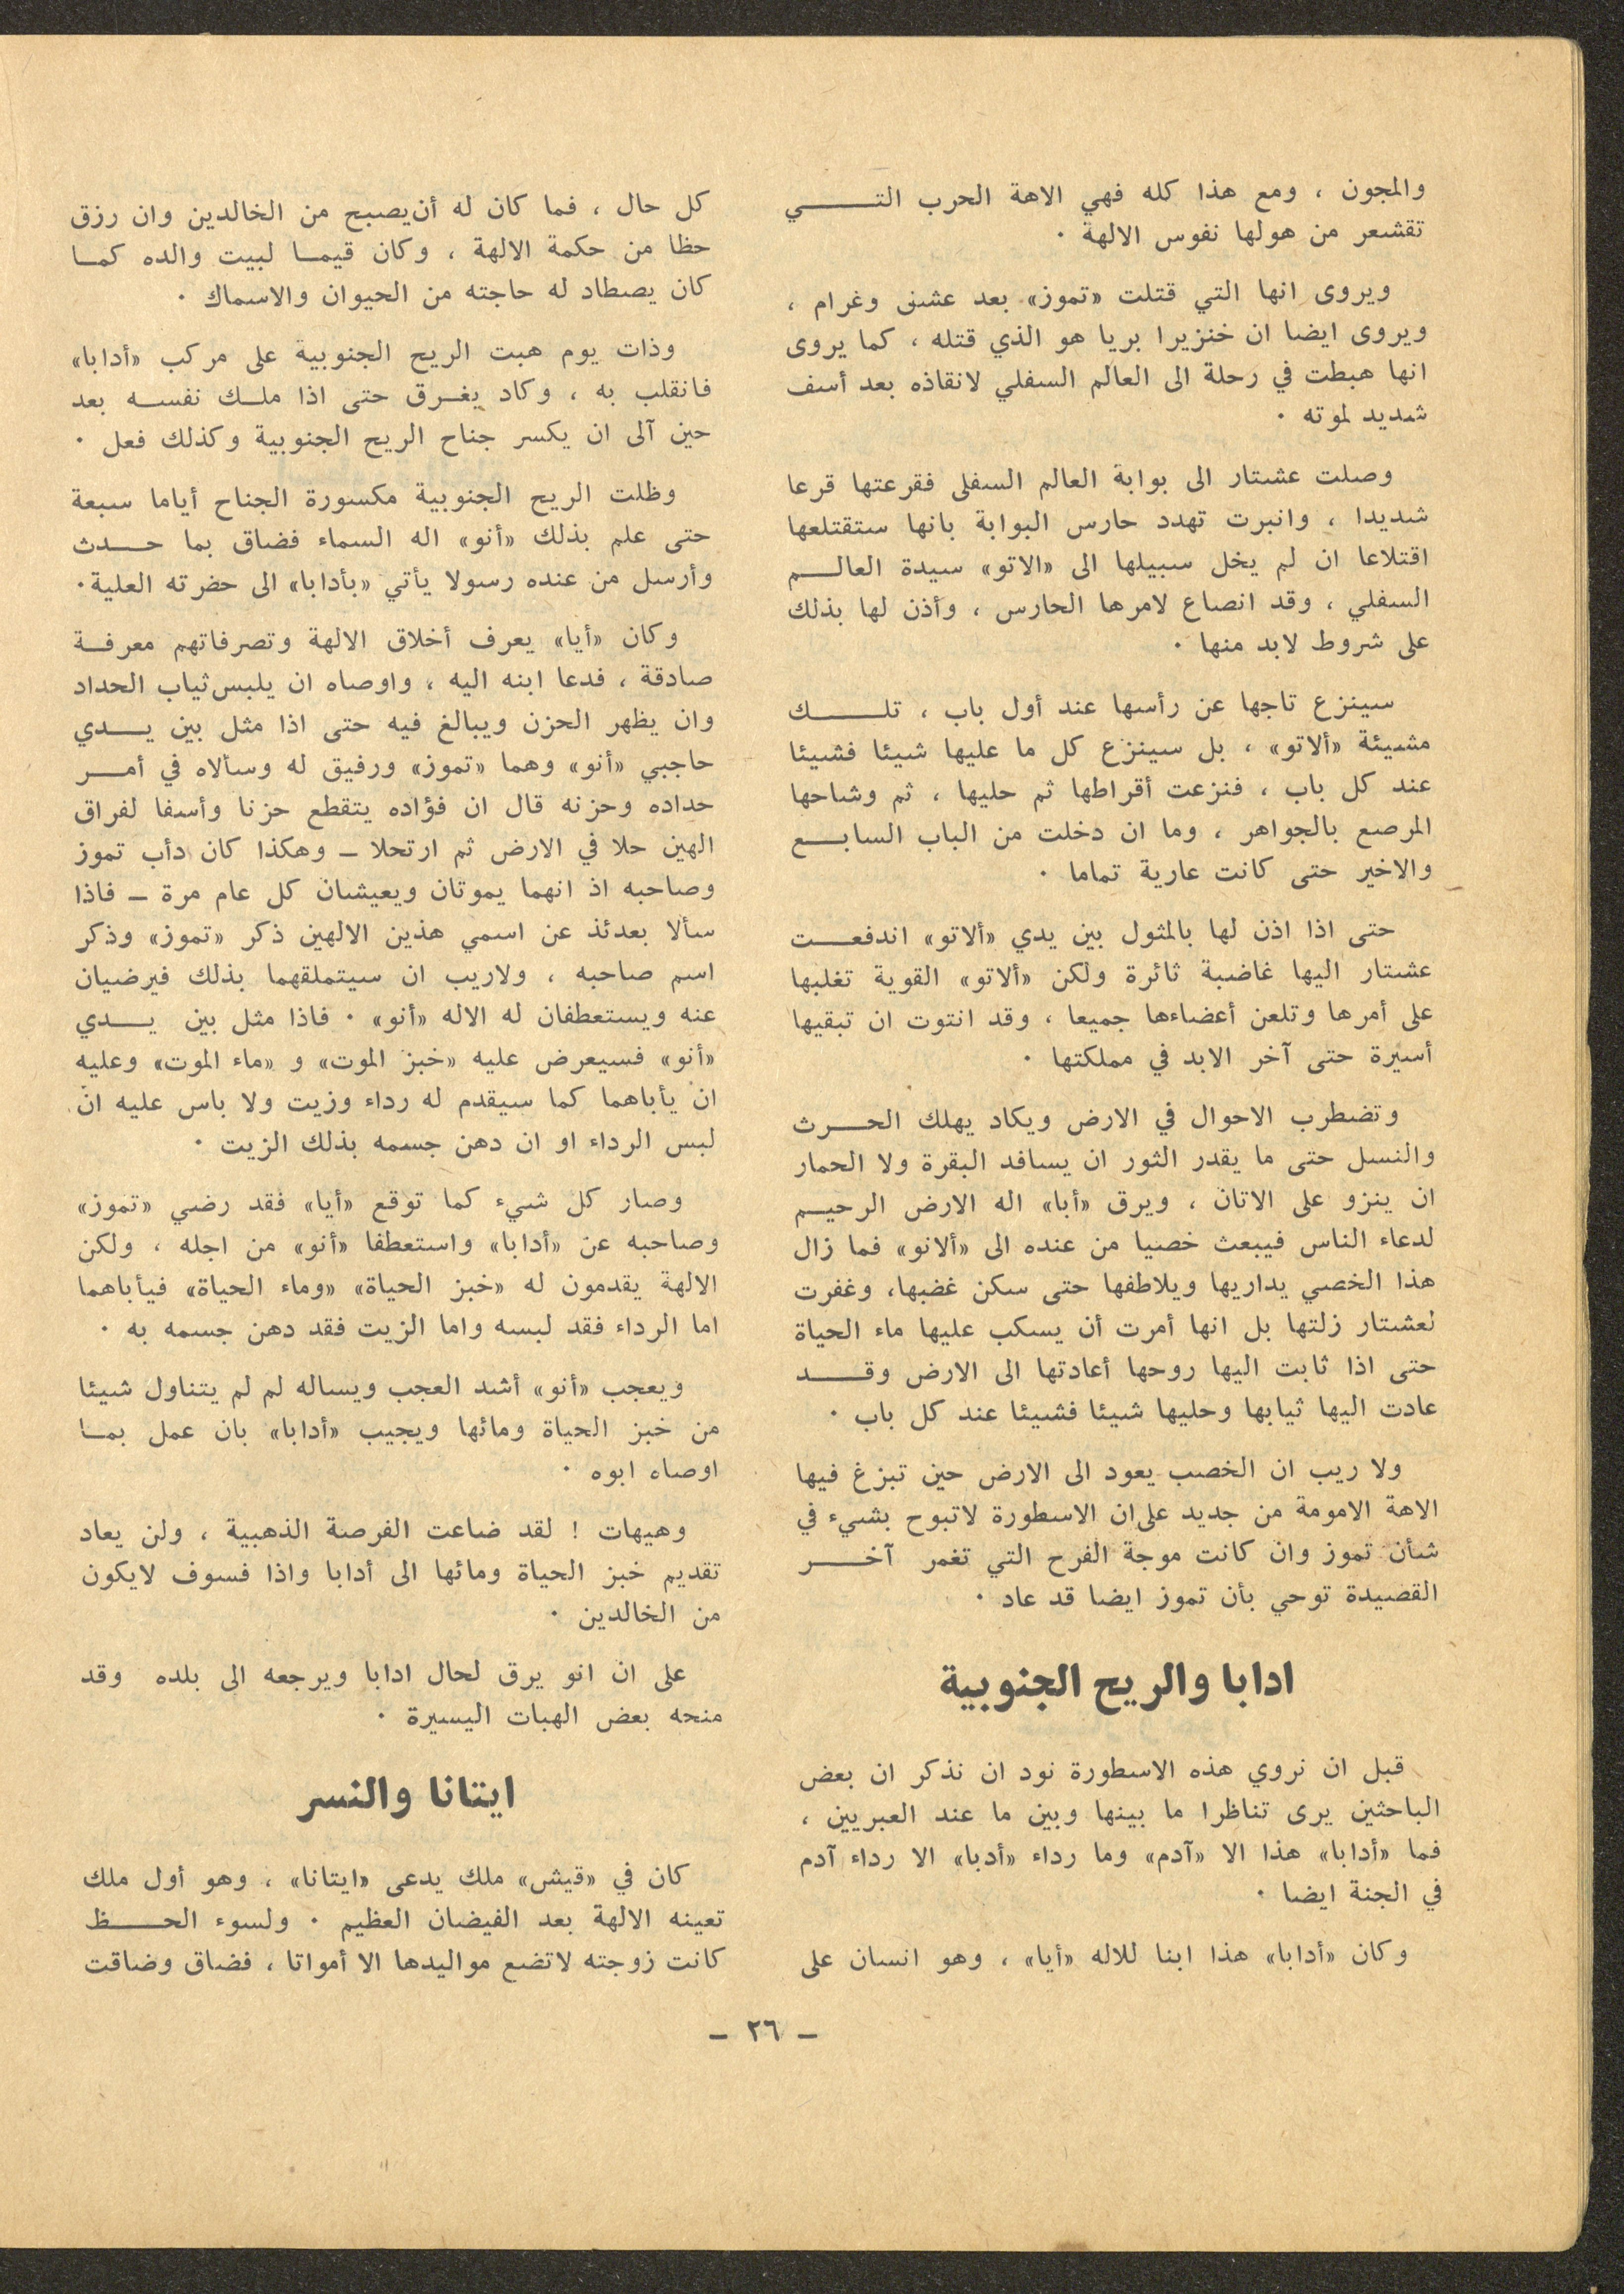 والمجون ، ومع هذا كله فهي الاهة الحرب التـــــي
تقشعر من هولها نفوس الالهة ٠
ويروى انها التي قتلت «تموز» بعد عشق وغرام ،
ويروى ايضا ان خنزيرا بريا هو الذي قتله ، كما يروى
انها هبطت في رحلة الى العالم السفلي لانقاذه بعد أسف
شديد لموته ٠
وصلت عشتار الى بوابة العالم السفلى فقرعتها قرعا
شديدا ، وانبرت تهدد حارس البوابة بانها ستقتلعها
اقتلاعا ان لم يخل سبيلها الى «الاتو» سيدة العالـــم
السفلي ، وقد انصاع لامرها الحارس ، وأذن لها بذلك
على شروط لابد منها ٠
سينزع تاجها عن رأسها عند أول باب ، تلـــــك
مشيئة «ألاتو» ، بل سينزع كل ما عليها شيئا فشيئا
عند كل باب ، فنزعت أقراطها ثم حليها ، ثم وشاحها
المرصع بالجواهر ، وما ان دخلت من الباب السابـــع
والاخير حتى كانت عارية تماما ٠
حتى اذا اذن لها بالمثول بين يدي «ألاتو» اندفعـــت
عشتار اليها غاضبة ثائرة ولكن «ألاتو» القوية تغلبها
على أمرها وتلعن أعضاءها جميعا ، وقد انتوت ان تبقيها
أسيرة حتى آخر الابد في مملكتها ٠
وتضطرب الاحوال في الارض ويكاد يهلك الحـــرث
والنسل حتى ما يقدر الثور ان يسافد البقرة ولا الحمار
ان ينزو على الاتان ، ويرق «أبا» اله الارض الرحيـــم
لدعاء الناس فيبعث خصيا من عنده الى «ألانو» فما زال
هذا الخصي يداريها ويلاطفها حتى سكن غضبها، وغفرت
لعشتار زلتها بل انها أمرت أن يسكب عليها ماء الحياة
حتى اذا ثابت اليها روحها أعادتها الى الارض وقـــــد
عادت اليها ثيابها وحليها شيئا فشيئا عند كل باب ٠
ولا ريب ان الخصب يعود الى الارض حين تبزغ فيها
الاهة الامومة من جديد على ان الاسطورة لاتبوح بشيء في
شأن تموز وان كانت موجة الفرح التي تغمر آخـــــر
القصيدة توحي بأن تموز ايضا قد عاد ٠
ادابا والريح الجنوبية
قبل ان نروي هذه الاسطورة نود ان نذكر ان بعض
الباحثين يرى تناظرا ما بينها وبين ما عند العبريين ،
فما «أدابا» هذا الا «آدم» وما رداء «أدبا» الا رداء آدم
في الجنة ايضا ٠
وكان «أدابا» هذا ابنا للاله «أيا» ، وهو انسان على
كل حال ، فما كان له أن يصبح من الخالدين وان رزق
حظا من حكمة الالهة ، وكان قيمـا لبيت والده كمـا
كان يصطاد له حاجته من الحيوان والاسماك ٠
وذات يوم هبت الريح الجنوبية على مركب «أدابا»
فانقلب به ، وكاد يغـرق حتى اذا ملـك نفسـه بعد
حين آلى ان يكسر جناح الريح الجنوبية وكذلك فعل ٠
وظلت الريح الجنوبية مكسورة الجناح أياما سبعة
حتى علم بذلك «أنو» اله السماء فضاق بما حـــدث
وأرسل من عنده رسولا يأتي «بأدابا» الى حضرته العلية٠
وكان «أيا» يعرف أخلاق الالهة وتصرفاتهم معرفـة
صادقة ، فدعا ابنه اليه ، واوصاه ان يلبس ثياب الحداد
وان يظهر الحزن ويبالغ فيه حتى اذا مثل بين يـــدي
حاجبي «أنو» وهما «تموز» ورفيق له وسألاه في أمـــر
حداده وحزنه قال ان فؤاده يتقطع حزنا وأسفا لفراق
الهين حلا في الارض ثم ارتحلا – وهكذا كان دأب تموز
وصاحبه اذ انهما يموتان ويعيشان كل عام مرة – فاذا
سألا بعدئذ عن اسمي هذين الالهين ذكر «تموز» وذكر
اسم صاحبه ، ولاريب ان سيتملقهما بذلك فيرضيان
عنه ويستعطفان له الاله «أنو» ٠ فاذا مثل بين يـــدي
«أنو» فسيعرض عليه «خبز الموت» و «ماء الموت» وعليه
ان يأباهما كما سيقدم له رداء وزيت ولا باس عليه ان
لبس الرداء او ان دهن جسمه بذلك الزيت ٠
وصار كل شيء كما توقع «أيا» فقد رضي «تموز»
وصاحبه عن «أدابا» واستعطفا «أنو» من اجله ، ولكن
الالهة يقدمون له «خبز الحياة» «وماء الحياة» فيأباهما
اما الرداء فقد لبسه واما الزيت فقد دهن جسمه به ٠
ويعجب «أنو» أشد العجب ويساله لم لم يتناول شيئا
من خبز الحياة ومائها ويجيب «أدابا» بان عمل بمـا
اوصاه ابوه ٠
وهيهات ! لقد ضاعت الفرصة الذهبية ، ولن يعاد
تقديم خبز الحياة ومائها الى أدابا واذا فسوف لايكون
من الخالدين ٠
على ان انو يرق لحال ادابا ويرجعه الى بلده وقد
منحه بعض الهبات اليسيرة ٠
ايتانا والنسر
كان في «قيش» ملك يدعى «ايتانا» ، وهو أول ملك
تعينه الالهة بعد الفيضان العظيم ٠ ولسوء الحـــــظ
كانت زوجته لاتضع مواليدها الا أمواتا ، فضاق وضاقت
– ٢٦ –